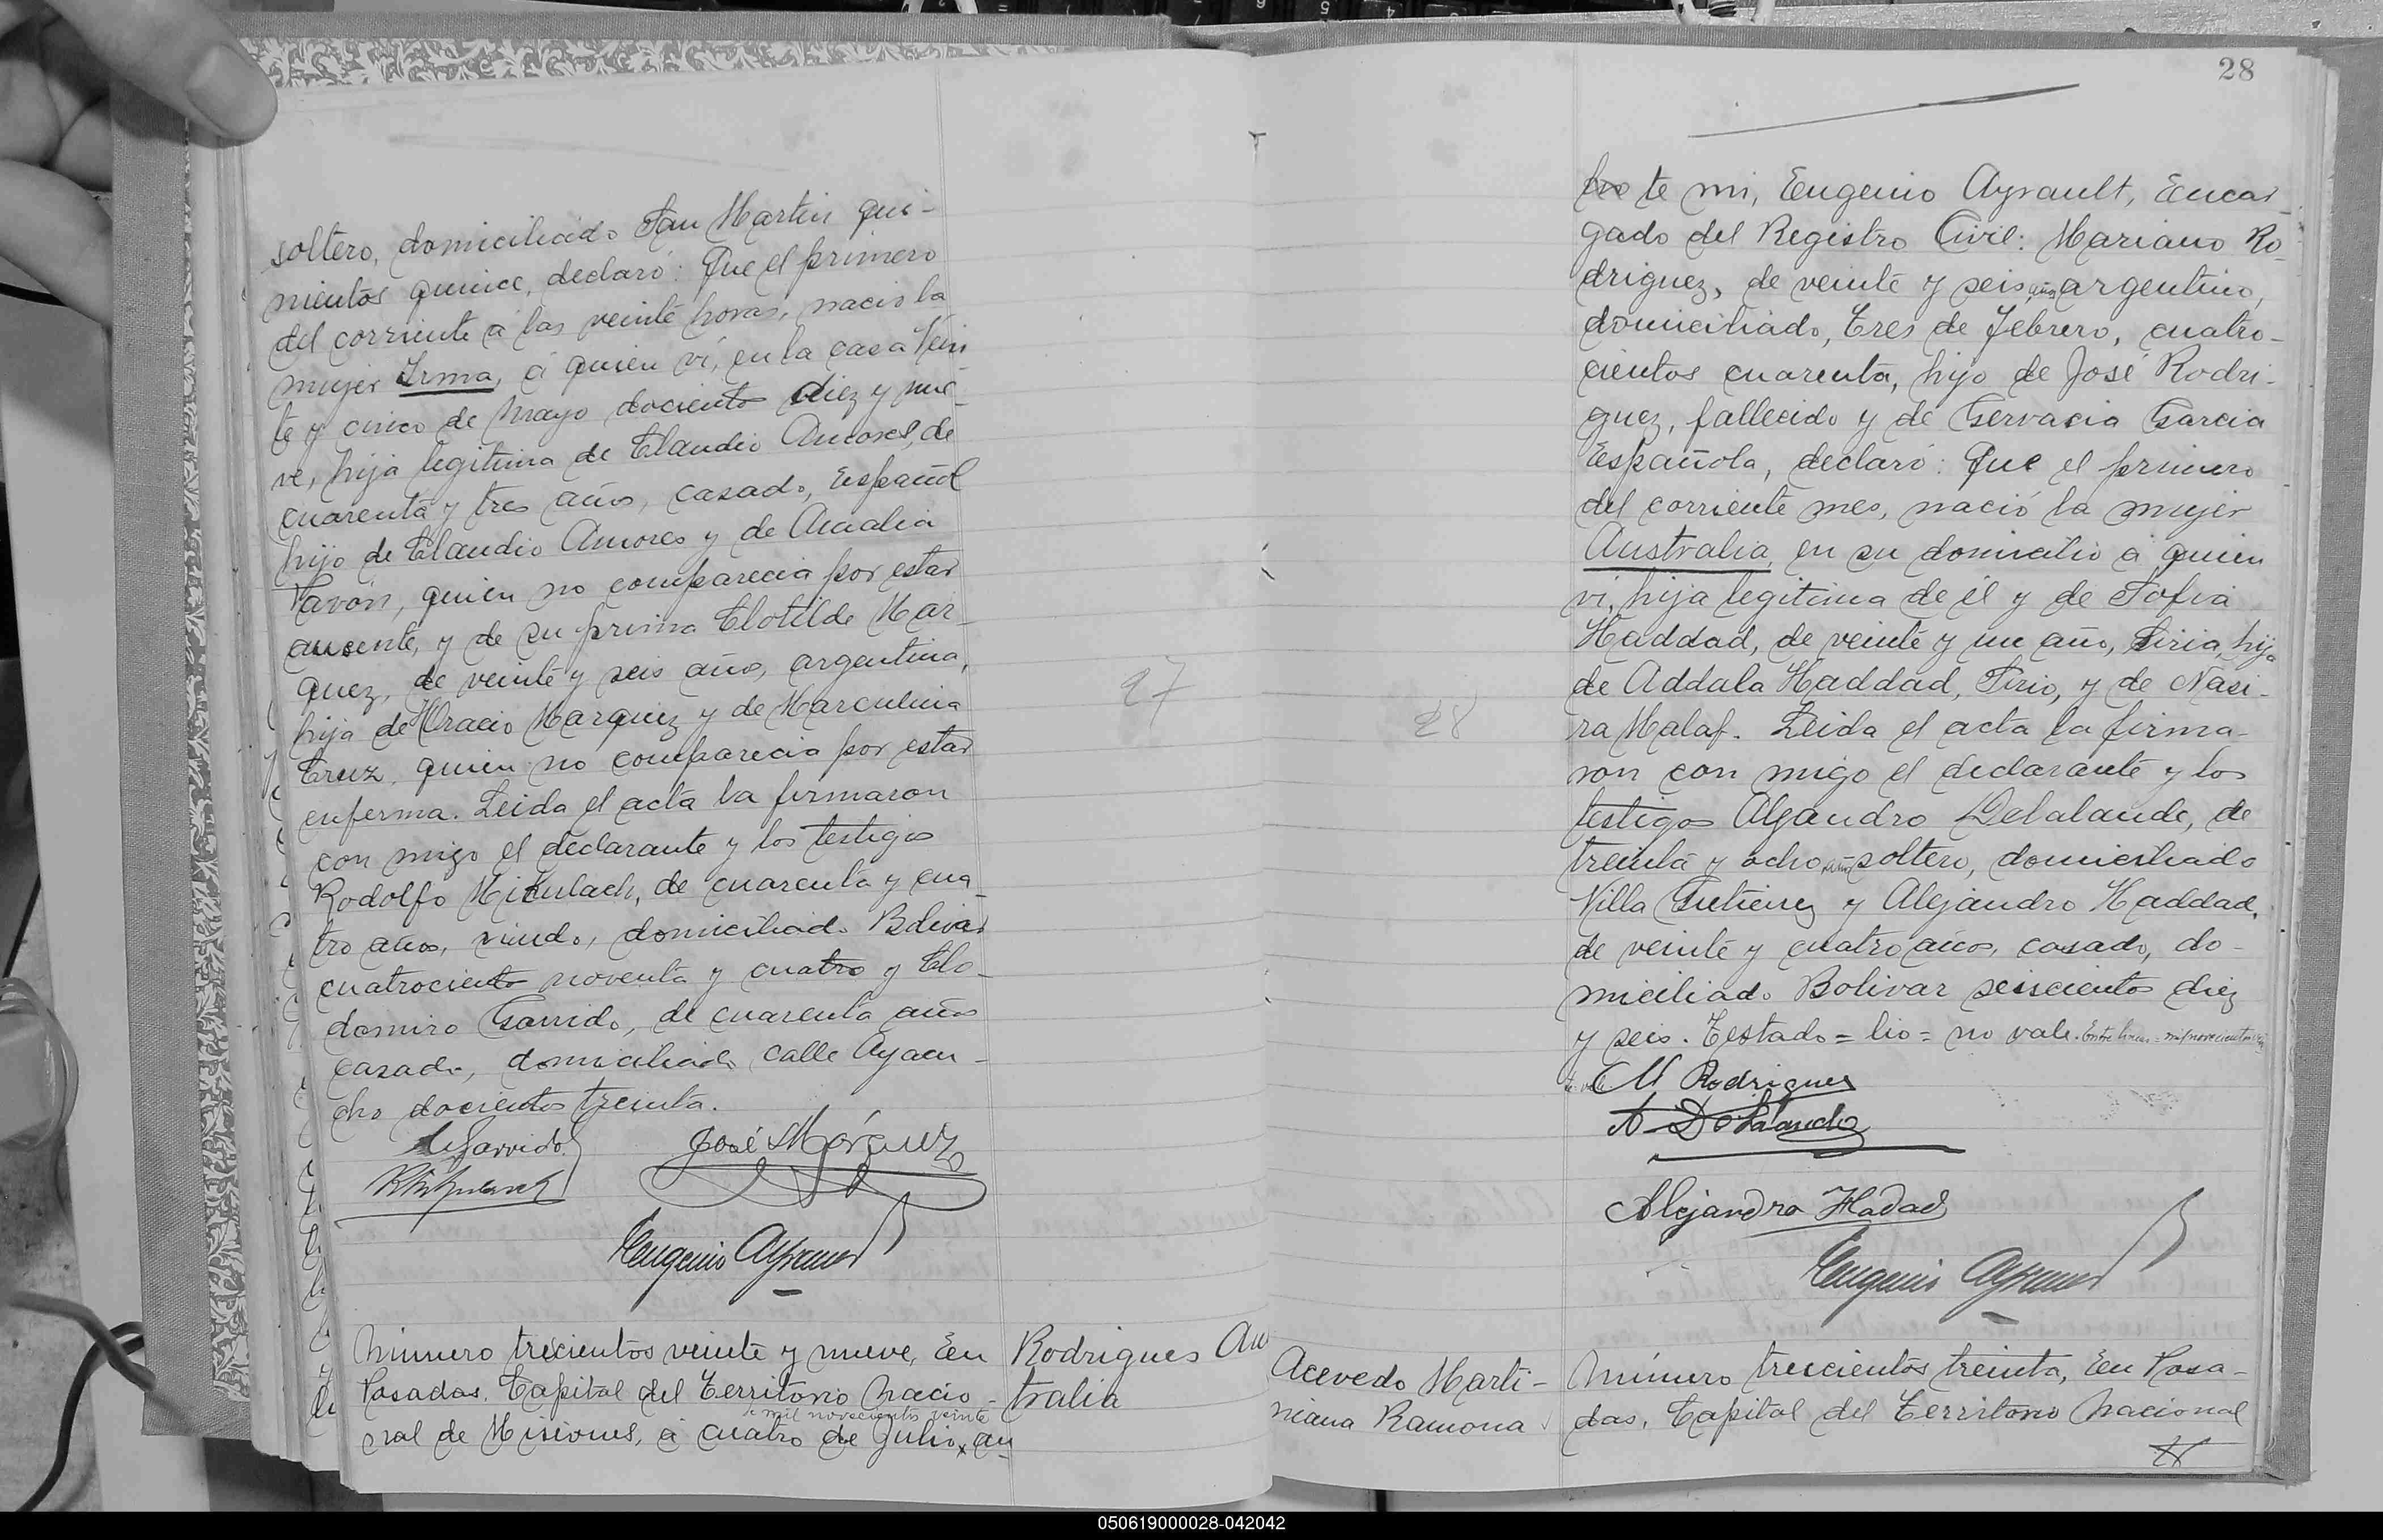 soltero, domiciliado San Martin qui-
nientos quince, declaró: Que el primero
del corriente á las veinte horas, nació la
mujer Irma, á quien ví, en la casa Vein
te y cinco de Mayo docientos diez y nue-
ve, hija legitima de Claudio Amores, de
cuarenta y tres años, casado, Español
hijo de Claudio Amores y de Amalia
Pavón, quien no comparecia por estar
ausente, y de su prima Clotilde Mar-
quez, de veinte y seis años, argentina,
hija de Oracio Marquez y de Marculina
Cruz, quien no comparecia por estar
enferma. Leida el acta la firmaron
con migo el declarante y los testigos
Rodolfo Mikulach, de cuarenta y cua-
tro años, viudo, domiciliado Bolivar
cuatrocientos noventa y cuatro y Clo-
domiro Garrido, de cuarenta años
casado, domiciliado calle Ayacu-
cho docientos treinta.
Garrido
José Márquez
Eugenio Ayrault
Número trecientos veinte y nueve, En
Posadas, Capital del Territorio Nacio-
mil novecientos veinte
nal de Misiones, á cuatro de Julio, an
Rodrigues Aus
tralia
27
28
28
te mi, Eugenio Ayrault, Encar-
gado del Registro Civil: Mariano Ro-
driguez, de veinte y seis años argentino,
domiciliado, Tres de Febrero, cuatro-
cientos cuarenta, hijo de José Rodri-
guez, fallecido y de Gervacia Garcia
Española, declaró: Que el primero
del corriente mes, nació la mujer
Australia, en su domicilio á quien
ví, hija legitima de él y de Sofia
Haddad, de veinte y un año, Siria, hija
de Addala Haddad, Sirio, y de Nasi-
ra Malaf. Leida el acta la firma-
ron con migo el declarante y los
testigos Aljandro Delalande, de
treinta y ocho años soltero, domiciliado
Villa Gutierrez y Alejandro Haddad,
de veinte y cuatro años, casado, do-
miciliado Bolivar seiscientos diez
y seis. Testado = lio = no vale. Entre lineas = mil novecientos
M Rodrigues
A Delalande
Alejandro Hadad
Eugenio Ayrault
Acevedo Marti-
niana Ramona
Número trescientos treinta, En Posa-
das, Capital del Territorio Nacional
050619000028-042042